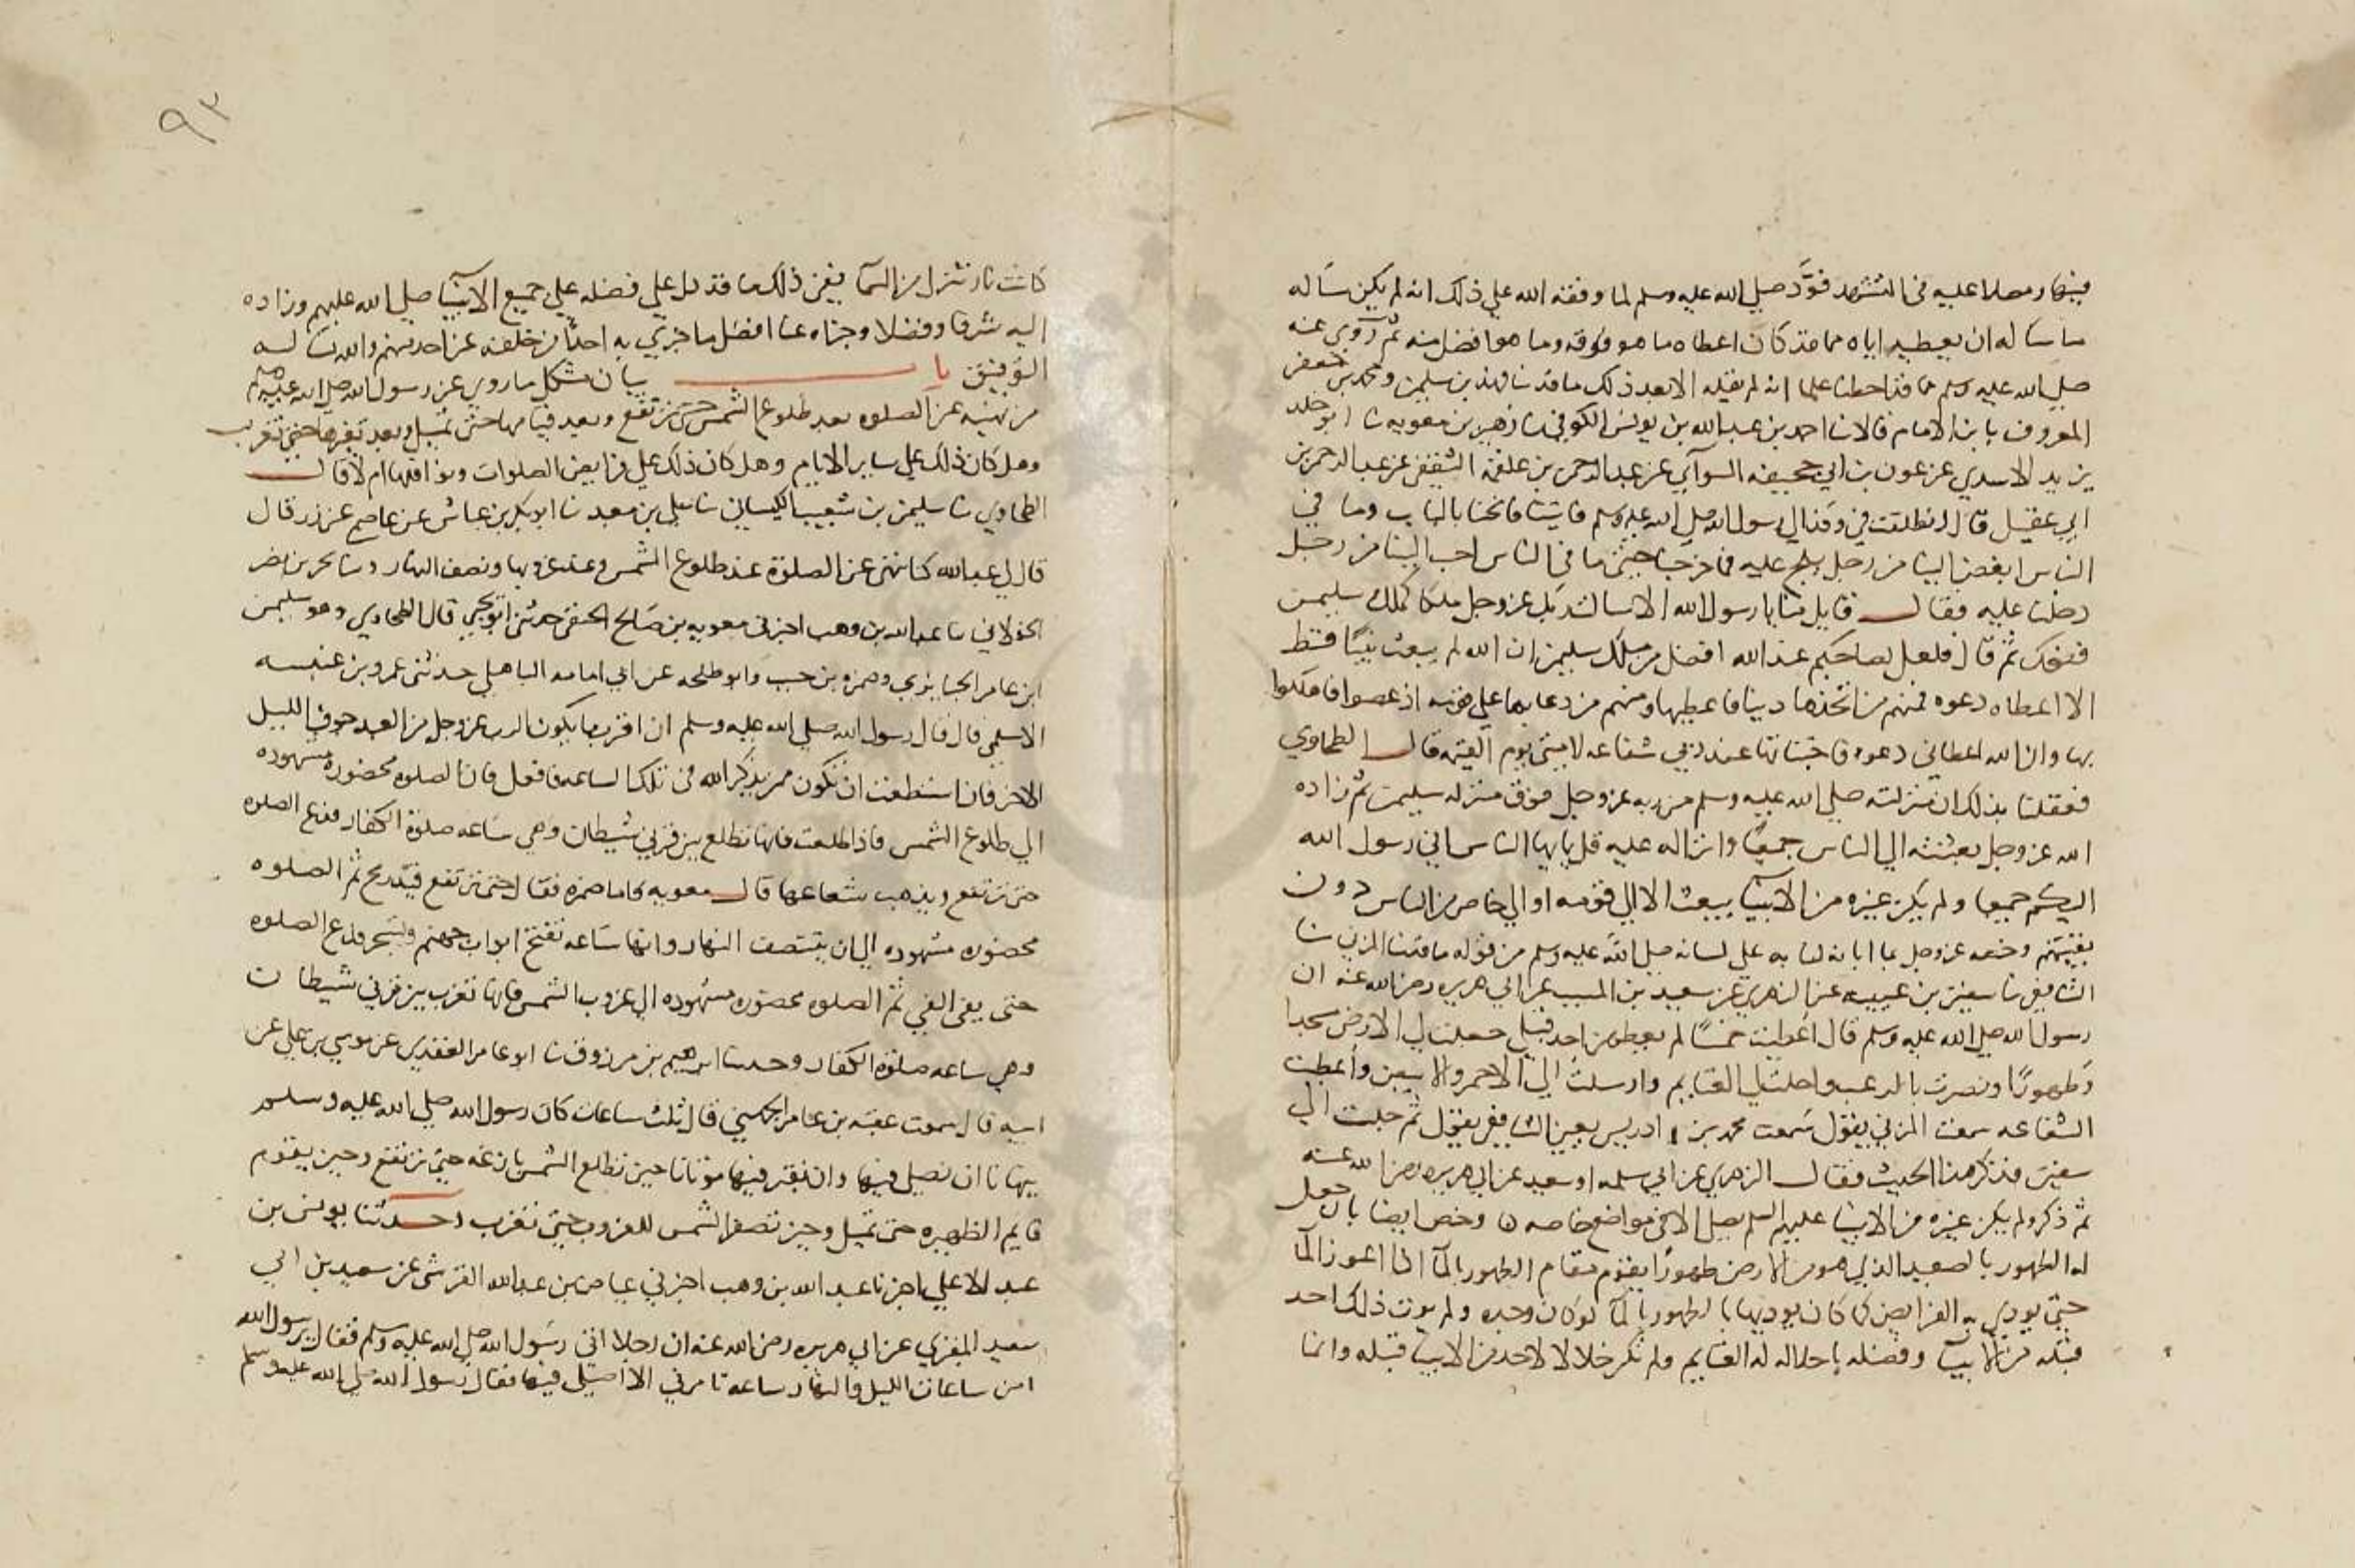 فيها رمصلاعليه في التشهد فود صلي الله عليه وسلم لما وفقه الله علي ذلك انه لم يكن سأله
ما سأله ان يعطيه اياه مما قد كان اعطاه ما هو فوقه وما هو افضل منه ثم روي عنه
صلي الله عليه وسلم مما قد احطنا علما انه لم يقله الا بعد ذلك ما قد نا فهد بن سليمن ومحمد بن جعفر
المعروف بابن الامام قالا نا احمد بن عبد الله بن يونس الكوفي نا زهير بن معويه نا ابو خلد
يزيد الاسدي عن عون بن ابي جحيفه السوآي عن عبد الرحمن بن علقمه الثقفي عن عبد الرحمن بن
ابي عقيل قال انطلقت في وفد الي رسول الله صلي الله عليه وسلم فاتينا فانخنا بالباب وما في
الناس ابغض الينا من رجل يلج عليه فما خرجنا حتي ما في الناس احب الينا من رجل
دخلنا عليه فقال قايل منا يا رسول الله الا سالت ربك عز وجل ملكا كملك سليمن
فضحك ثم قال فلعل لصاحبكم عند الله افضل من ملك سليمن ان الله لم يبعث نبيًا قط
الا اعطاه دعوه فمنهم من اتخذها دينا فاعطيها ومنهم من دعا بها علي قومه اذ عصوا فاهلكوا
بها وان الله اعطاني دعوه فاختباتها عند ربي شفاعه لامتي يوم القيمه قال الطحاوي
فعقلنا بذلك ان منزلته صلي الله عليه وسلم من ربه عز وجل فوق منزله سليمن ثم زاده
الله عز وجل بعثته الي الناس جميعًا وانزاله عليه قل يايها الناس اني رسول الله
اليكم جميعا ولم يكن غيره من الانبيآ يبعث الا الي قومه او الي خاص من الناس دون
بقيتهم وخصه عز وجل بما ابانه لنا به علي لسانه صلي الله عليه وسلم من قوله ما قد نا المزني نا
الشافعي نا سفين بن عيينه عن الزهري عن سعيد بن المسيب عن ابي هريره رضي الله عنه ان
رسول الله صلي الله عليه وسلم قال اعطيت خمسًا لم يعطهن احد قبلي جعلت لي الارض مسجدا
وطهورًا ونصرت بالرعب واحلت لي الغنايم وارسلت الي الاحمر والابيض واعطيت
الشفاعه سمعت المزني يقول سمعت محمد بن ادريس يعني الشافعي يقول ثم جلت الي
سفين فذكر هذا الحديث فقال الزهري عن ابي سلمه او سعيد عن ابي هريره رضي الله عنه
ثم ذكر ولم يكن غيره من الانبيا عليهم السلم يصلي الا في مواضع خاصه وخص ايضا بان جعل
له الطهور بالصعيد الذي هو من الارض طهورًا يقوم مقام الطهور بالمآ اذا اعوز المآ
حتي يودي به الفرايض كما كان يوديها بالطهور بالمآ لو كان وجده ولم يوت ذلك احد
قبله من الانبيآ وفضله باحلاله له الغنايم ولم تكن حلالا لاحد من الانبيا قبله وانما
٩٣
كانت نار تنزل من السمآ يغني ذلك ما قد دل علي فضله علي جميع الانبيا صلي الله عليهم وزاده
اليه شرفا وفضلا وجزاه عنا افضل ما جزي به احدًا من خلقه عن احد منهم والله نساله
التوفيق باب بيان مشكل ما روي عن رسول الله صلي الله عليه وسلم
من نهيه عن الصلوه بعد طلوع الشمس حتي ترتفع وبعد قيامها حتي تميل وبعد تغيرها حتي تغرب
وهل كان ذلك علي ساير الايام وهل كان ذلك علي فرايض الصلوات ونوافلها ام لا قال
الطحاوي نا سليمن بن شعيب الكيساني نا علي بن معبد نا ابو بكر بن عياش عن عاصم عن زر قال
قال لي عبد الله كنا ننهي عن الصلوة عند طلوع الشمس وعند غروبها ونصف النهار ونا بحر بن نصر
الخولاني نا عبد الله بن وهب اخبرني معويه بن صالح الحمصي حدثني ابو يحيي قال الطحاوي وهو سليمن
ابن عامر الخبايري وضمره بن حبيب وابو طلحه عن ابي امامه الباهلي حدثني عمرو بن عنبسه
الاسلمي قال قال رسول الله صلي الله عليه وسلم ان اقرب ما يكون الرب عز وجل من العبد جوف الليل
الاخر فان استطعت ان تكون ممن يذكر الله في تلك الساعه فافعل فان الصلوه محضوره مشهوده
الي طلوع الشمس فاذا طلعت فانها تطلع بين قرني شيطان وهي ساعه صلوة الكفار فدع الصلوه
حتي ترتفع ويذهب شعاعها قال معويه واما ضمره فقال حتي ترتفع قيد رمح ثم الصلوه
محضوره مشهوده الي ان ينتصف النهار وانها ساعه تفتح ابواب جهنم وتسجر فدع الصلوه
حتي يفي الفي ثم الصلوه محضوره مشهوده الي غروب الشمس فانها تغرب بين قرني شيطان
وهي ساعه صلوة الكفار وحدثنا ابرهيم بن مرزوق نا ابو عامر العقدي عن موسي بن علي عن
ابيه قال سمعت عقبه بن عامر الجهني قال ثلث ساعات كان رسول الله صلي الله عليه وسلم
ينهانا ان نصلي فيها وان نقبر فيها موتانا حين تطلع الشمس بازغه حتي ترتفع وحين يقوم
قايم الظهيره حتي تميل وحين تصفر الشمس للغروب حتي تغرب وحدثنا يونس بن
عبد الاعلي اخبرنا عبد الله بن وهب اخبرني عياض بن عبد الله القرشي عن سعيد بن ابي
سعيد المقبري عن ابي هريره رضي الله عنه ان رجلا اتي رسول الله صلي الله عليه وسلم فقال يرسول الله
امن ساعات الليل والنهار ساعه تامرني الا اصلي فيها فقال رسول الله صلي الله عليه وسلم